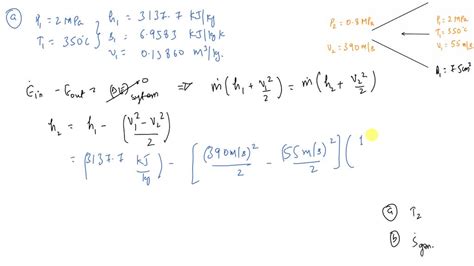 (a) P₁ = 2 MPa } h₁ = 3137.7 KJ/kg
T₁ = 350°C } s₁ = 6.9583 KJ/kg k
v₁ = 0.13860 m³/kg.
P₂ = 0.8 MPa
V₂ = 390 m/s
P₁ = 2 MPa
T₁ = 350°C
V₁ = 55 m/s
A₁ = 7.5 cm²
Ėin - Ėout = system 0 ⇒ ṁ(h₁ + V₁²/2) = ṁ(h₂ + V₂²/2)
h₂ = h₁ - (V₁² - V₂²/2)
= (3137.7 KJ/kg) - [(390 m/s)²/2 - (55 m/s)²/2] ( 1
(a) T₂
(b) Ṡgen.